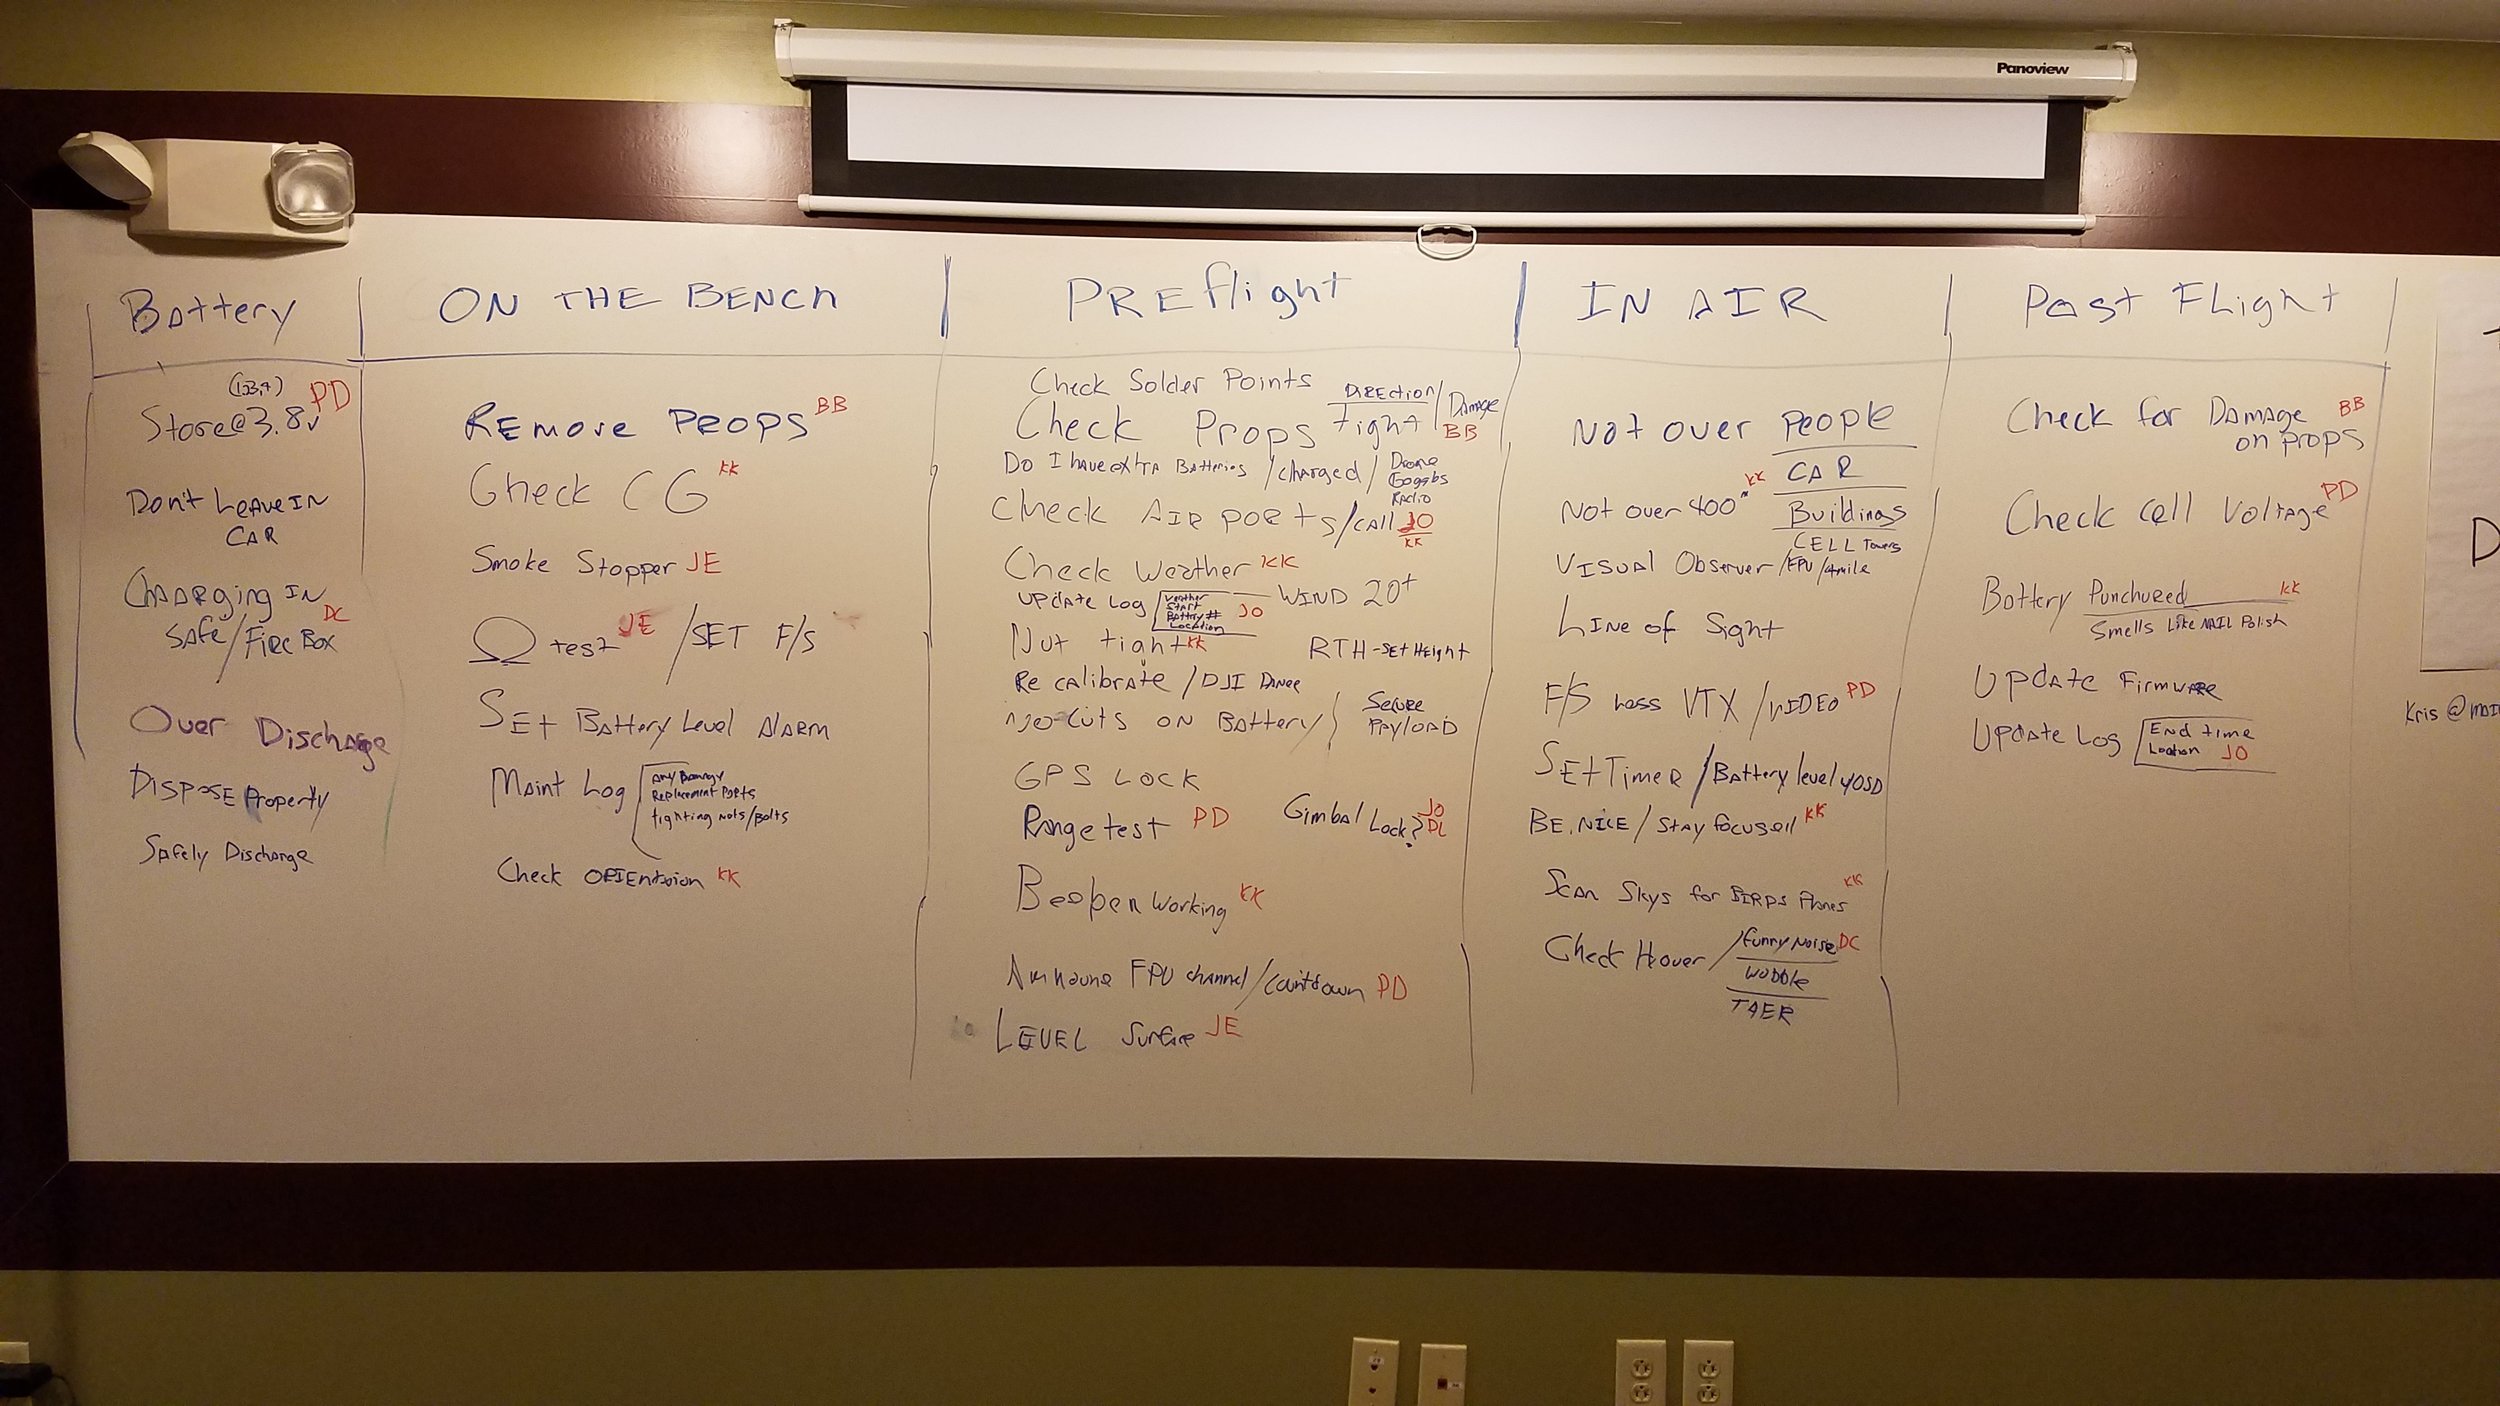 Panoview
Battery
Store@3.8v PD
Don't Leave IN
CAR
Charging IN
Safe/Fire Box DC
Over Discharge
Dispose Property
Safely Discharge
ON THE BENCH
Remove Props BB
Check CG KK
Smoke Stopper JE
Ω test JE /SET F/S
SEt Battery Level Alarm
Maint Log
Replacement Parts
tighting Nuts/Bolts
Check KK
PREflight
Check Solder Points
Check Props
DIRECtion/
tight
Damage
BB
Do I have extra Batteries /charged/
Drone
Goggles
Radio
Check AIR PORts/call JO
KK
Check Weather KK
WIND 20+
UPdate Log
Weather
Start
Battery#
Location
JO
Nut tight KK
RTH-SEt HEIght
Re calibrate /DJI
No-Cuts ON Battery
Secure
Payload
GPS LOCK
Range test PD
Gimbal Lock? JO
DL
Beeper Working KK
FPV channel/countdown PD
LEVEL Surface JE
IN AIR
Not over People
CAR
Buildings
CELL Towers
Not over 400 KK
VISUAL Observer/FPV/4mile
LINE of Sight
F/S Loss VTX /VIDEO PD
SEt TimeR /Battery level
BE.NICE/Stay focused KK
Scan Skys for BIRDS Planes KK
Check Hover /funny Noise DC
Wobble
TAER
Post FLight
Check for Damage BB
on props
Check cell Voltage PD
Battery Punchured KK
Smells Like NAIL Polish
UPdate Firmware
UPdate Log
End time
Location JO
D
Kris@